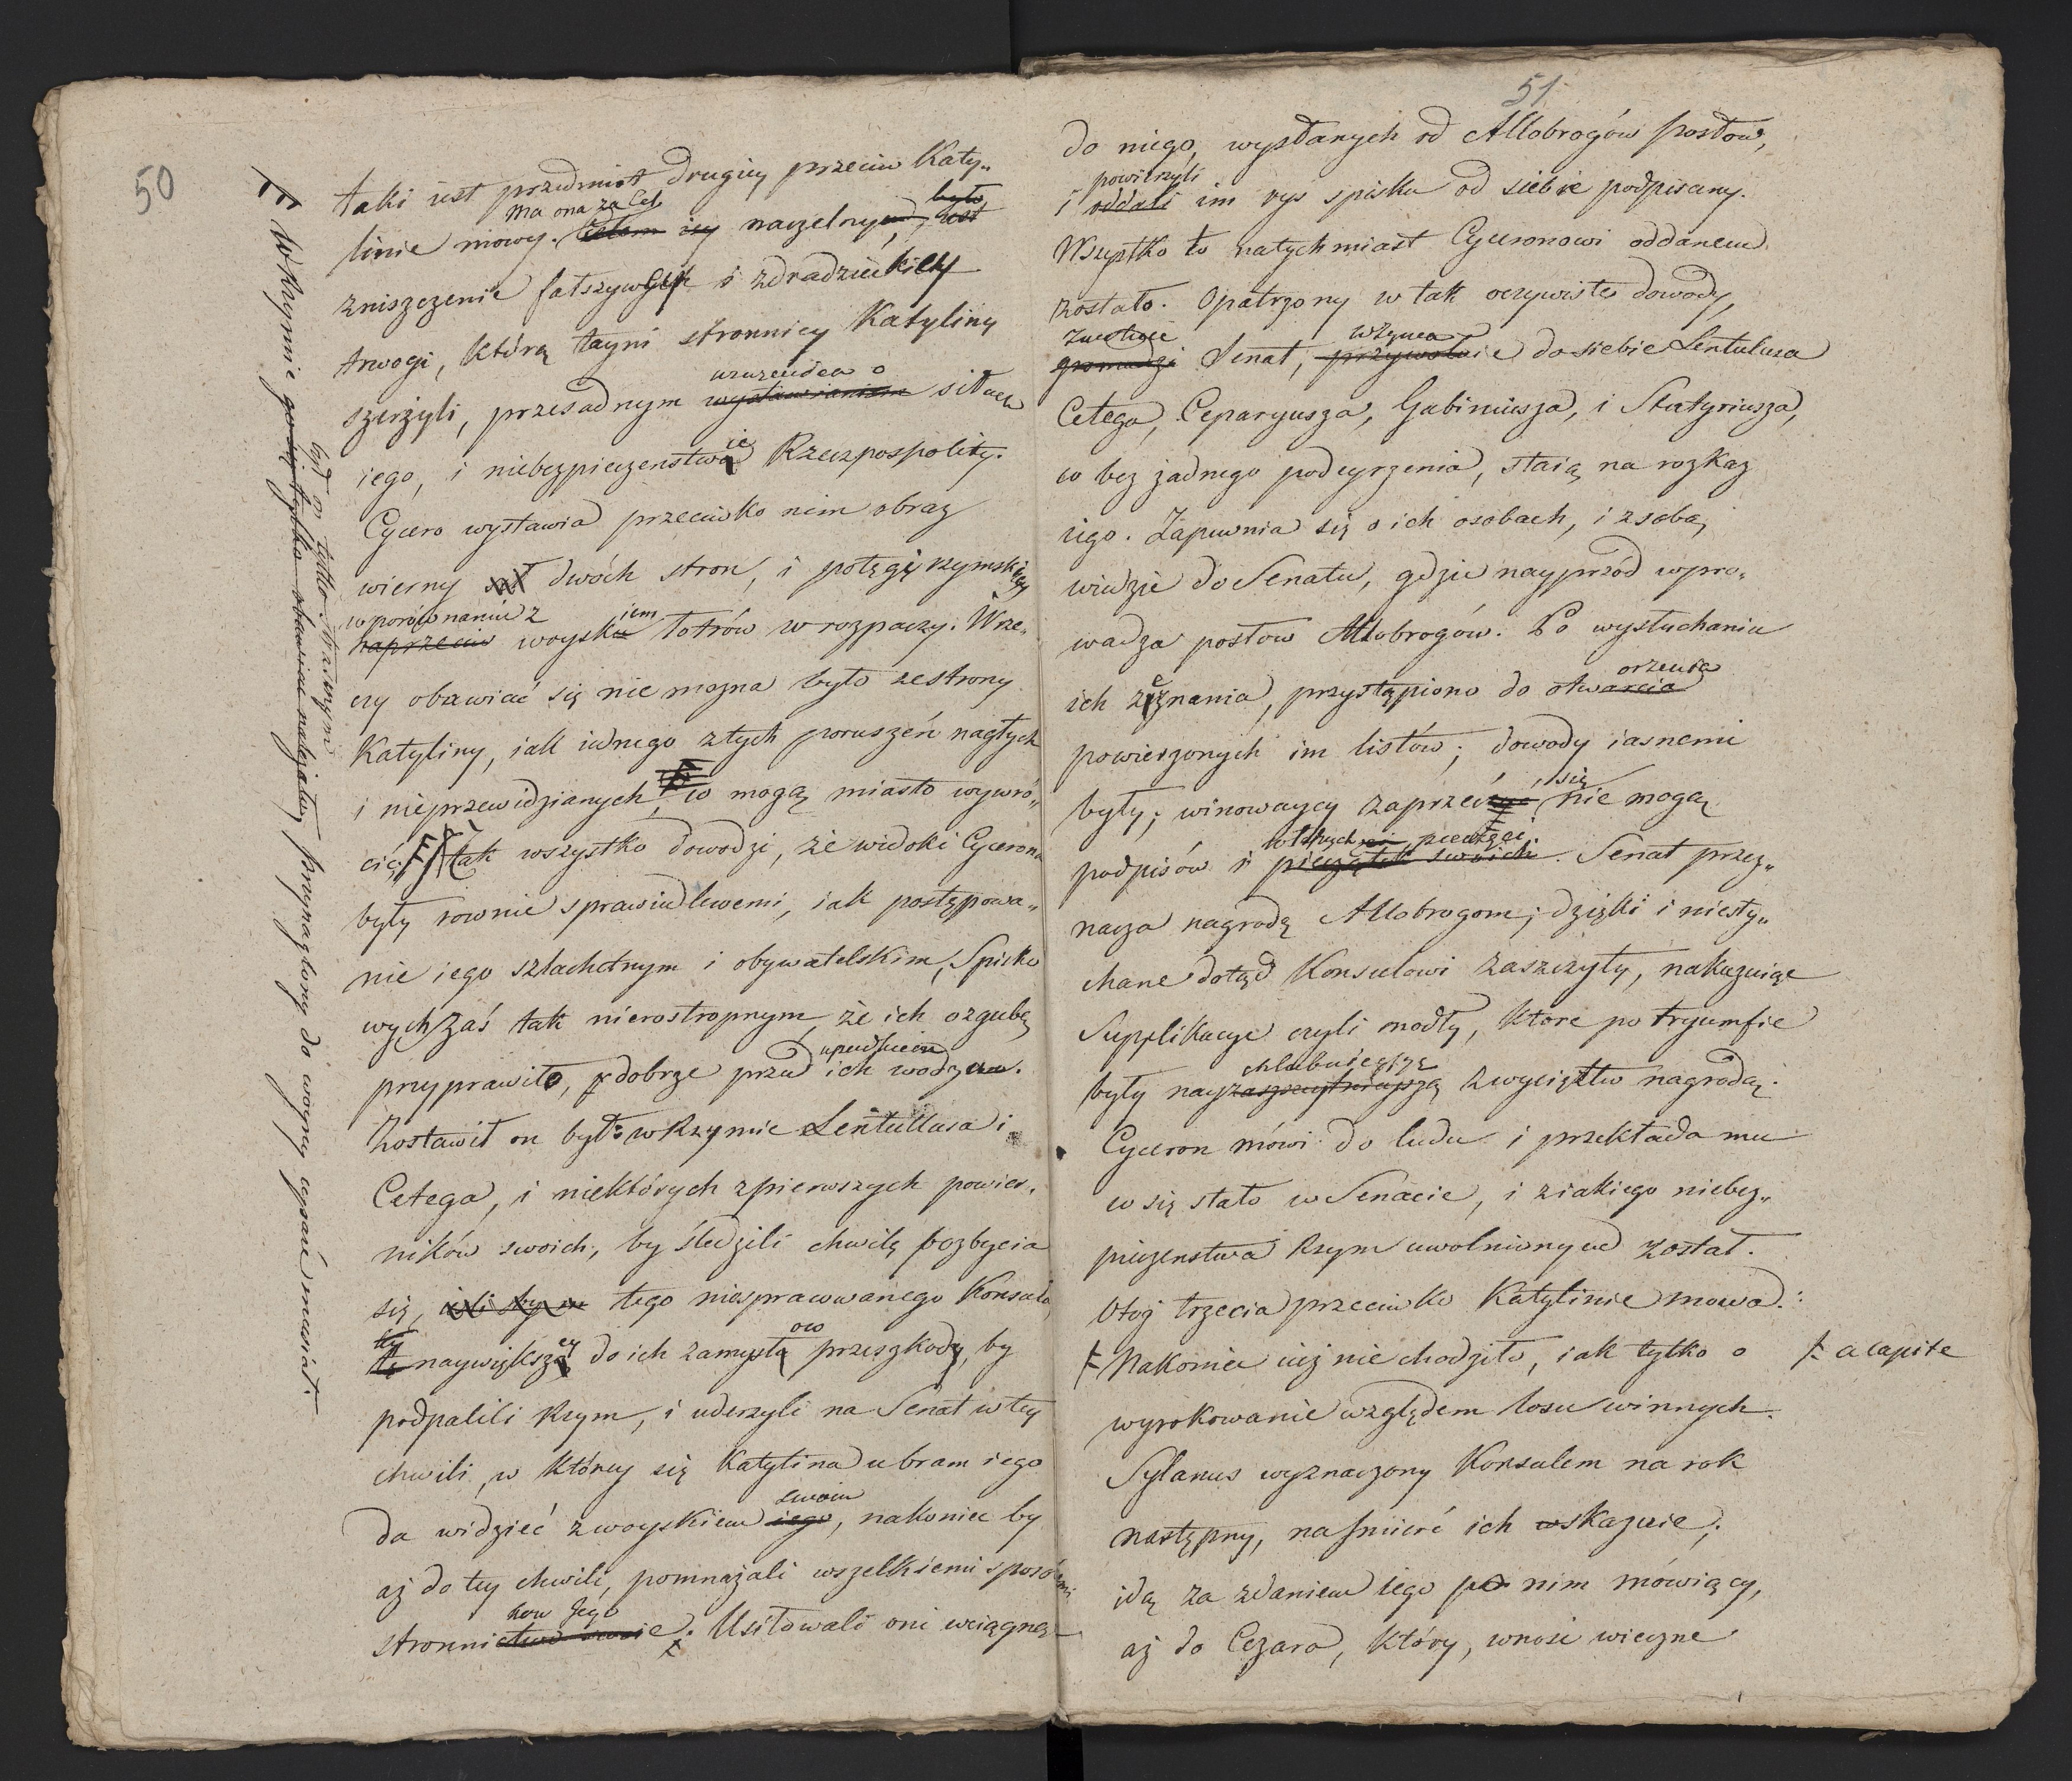 50
taki iest przedmiot drugiey przeciw Katy„
Ma ona za Cel było
linie mowy. Celem iey naczelnym, iest
zniszczenie fałszywey i zdradzieckiey
trwogi, którą tayni stronnicy Katyliny
wrażeniem o
szerzyli, przesadnym wystawianiem siłach
iego, i niebezpieczenstwie Rzeczpospolitey.
Cycero wystawia przeciwko nim obraz
wierny sił dwóch stron, i potęgę rzymską
w porównaniu z iem
naprzeciw woysku łotrów w rozpaczy. W rze„
czy obawiać się nie mozna było ze strony
Katyliny, iak iednego z tych poruszeń nagłych
i nieprzewidzianych, co mogą miasto wywró„
cić; tak wszystko dowodzi, że widoki Cycerona
były rownie sprawiedliwemi, iak postępowa„
nie iego szlachetnym i obywatelskim, Spisko
wych zaś tak nierostropnym, że ich o zgubę
przyprawiło, dobrze przed ich wodzem.
Zostawił on był w Rzymie Lentullusa i
Cetega, i niektórych z pierwszych powier„
ników swoich, by śledzili chwilę pozbycia
się, tego niespracowanego Konsula,
tey
tę naywiększey do ich zamysłow przeszkody, by
podpalili Rzym, i uderzyli na Senat w tey
chwili, w którey się Katylina u bram iego
swoim
da widzieć z woyskiem iego, nakoniec by
aż do tey chwili, pomnażali wszelkiemi sposobami
ków Jego
stronnictwo swoie. Usiłowali oni wciągnąć
F W Rzymie go się tylko obawiać należało, przynaglony do woyny czynić musiał.
był on tylko strasznym
51
do niego, wysłanych od Allobrogów posłow,
powierzyli
i oddali im rys spisku od siebie podpisany.
Wszystko to natychmiast Cyceronowi oddanem
zostało. Opatrzony w tak oczywiste dowody,
zwołuie wzywa
gromadzi Senat, przywołuie do siebie Lentulusa
Cetega, Ceparyusza, Gabiniusza, i Statyriusza,
co bez żadnego podeyrzenia, staią na rozkaz
iego. Zapewnia się o ich osobach, i z sobą
wiedzie do Senatu, gdzie nayprzód wpro„
wadza posłow Allobrogów. Po wysłuchaniu
orzenia
ich zeznania, przystąpiono do otwarcia
powierzonych im listów; dowody iasnemi
się
były; winowaycy zaprzeć nie mogą
własnych pieczęci
podpisów i pieczątek swoich. Senat prze„
nacza nagrodę Allobrogom; dzięki i niesły„
chane dotąd Konsulowi zaszczyty, nakazuiąc
Supplikacye czyli modły, ktore po tryumfie
chlubnieyszą
były nayzaszczytnieyszą zwycięztw nagrodą.
Cyceron mówi do ludu i przekłada mu
co się stało w Senacie, i z iakiego niebez„
pieczenstwa Rzym uwolnionym został.
Otóż trzecia przeciwko Katylinie mowa.
Nakoniec iuż nie chodziło, iak tylko o
a capite
wyrokowanie względem losu winnych.
Sylanus wyznaczony Konsulem na rok
następny, na śmierć ich wskazuie;
idą za zdaniem iego po nim mówiący,
aż do Cezara, który, wnosi wieczne